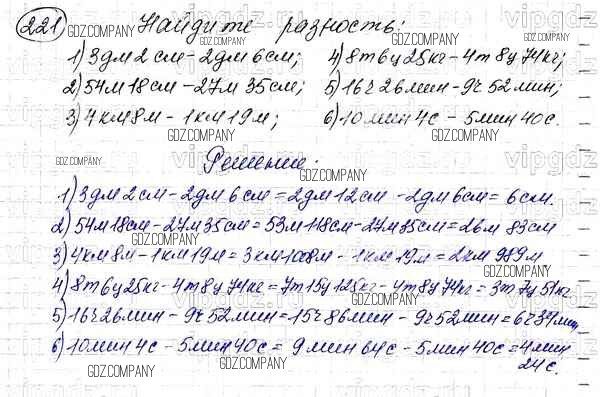 221 Найдите разность:
1) 3дм 2см - 2дм 6см; 4) 8т 6ц 25кг - 4т 8ц 74кг;
2) 54м 18см - 27м 35см; 5) 16ч 26мин - 9ч 52мин;
3) 4км 8м - 1км 19м; 6) 10мин 4с - 5мин 40с.
Решение.
1) 3дм 2см - 2дм 6см = 2дм 12см - 2дм 6см = 6см.
2) 54м 18см - 27м 35см = 53м 118см - 27м 35см = 26м 83см
3) 4км 8м - 1км 19м = 3км 1008м - 1км 19м = 2км 989м
4) 8т 6ц 25кг - 4т 8ц 74кг = 7т 15ц 125кг - 4т 8ц 74кг = 3т 7ц 51кг
5) 16ч 26мин - 9ч 52мин = 15ч 86мин - 9ч 52мин = 6ч 34мин
6) 10мин 4с - 5мин 40с = 9мин 64с - 5мин 40с = 4мин
24с.
GDZ.COMPANY
vipgdz.ru